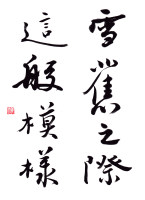 雪蕉之際
這般模樣